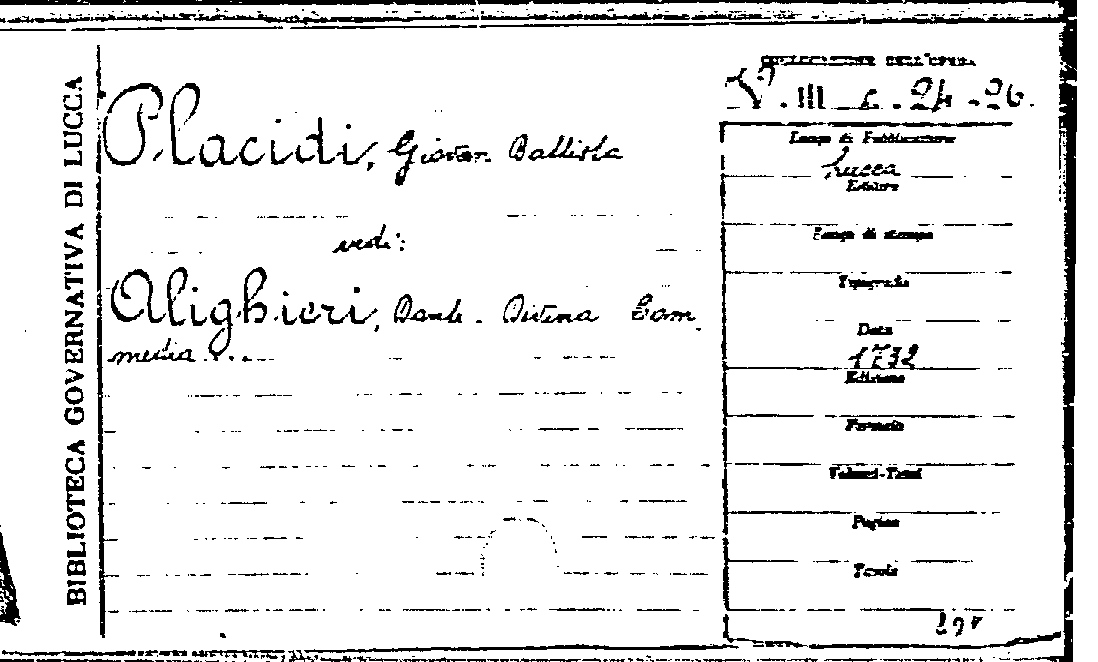 BIBLIOTECA GOVERNATIVA DI LUCCA
Placidi, Giovan Battista
vedi:
Alighieri, Dante - Divina Com
media...
COLLOCAZIONE DELL'OPERA
III c. 24-26.
Luogo di Pubblicazione
Lucca
Editore
Luogo di stampa
Tipografia
Data
1732
Edizione
Formato
Volumi-Tomi
Pagine
Tavole